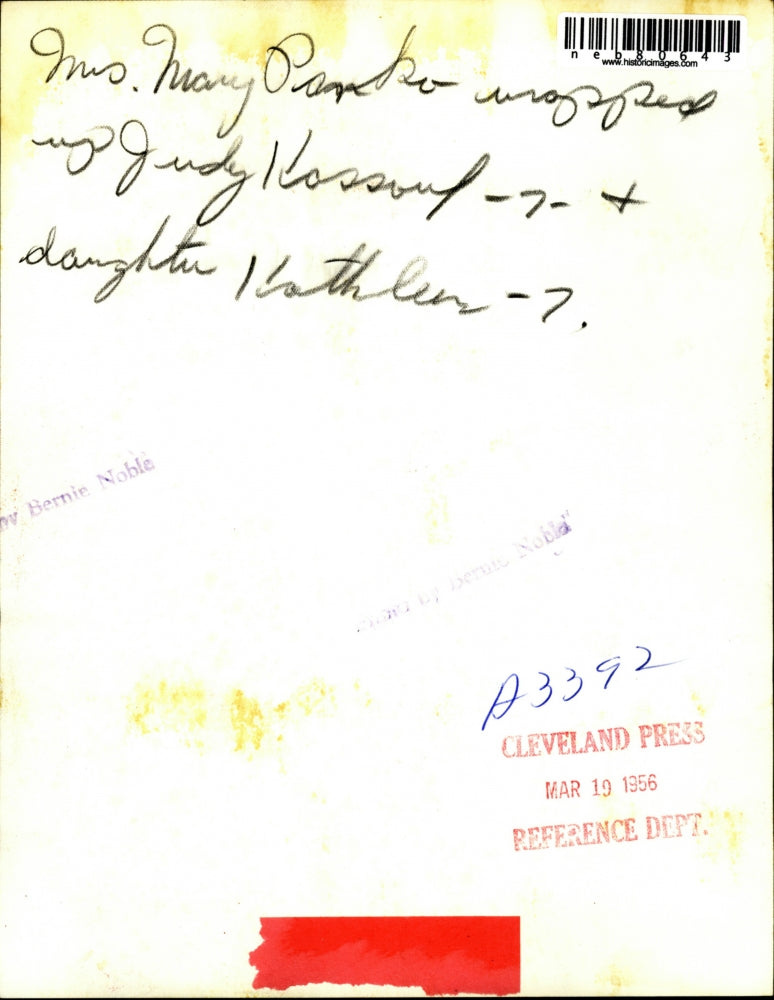 Mrs. Mary Panko wrapped
up Judy Kassouf -7- +
daughter Kathleen -7.
neb80643
www.historicimages.com
by Bernie Noble
Photo by Bernie Noble"
A3392
CLEVELAND PRESS
MAR 19 1956
REFERENCE DEPT.